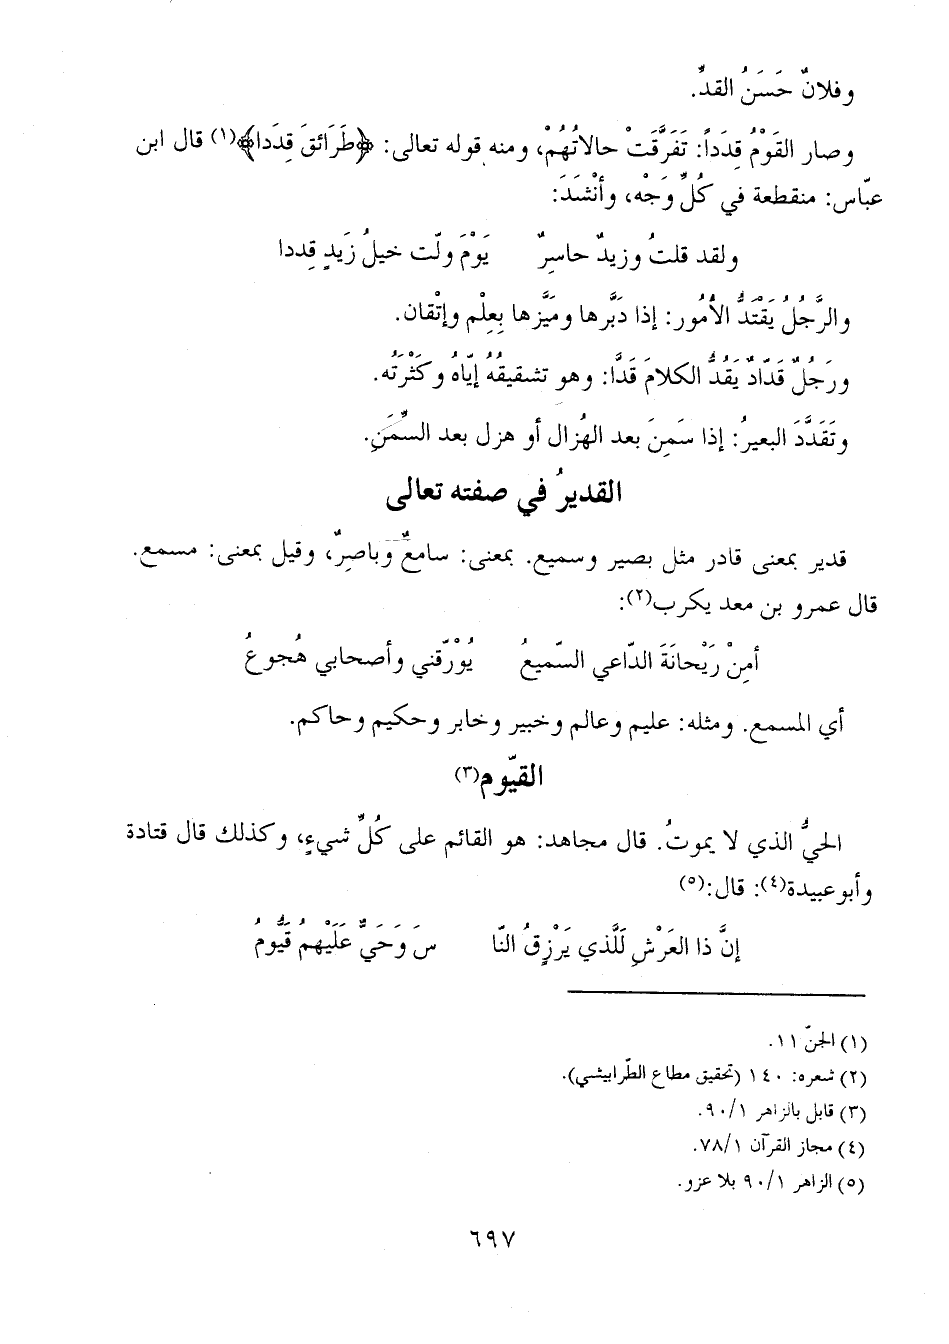 وفلانٌ حَسَنُ القدِّ.
وصار القَوْمُ قِدَداً: تَفَرَّقَتْ حالاتُهُمْ، ومنه قوله تعالى: ﴿طَرَائقَ قِدَدا﴾(١) قال ابن
عبّاس: منقطعة في كُلِّ وَجْه، وأنْشَدَ:
ولقد قلتُ وزيدٌ حاسِرٌ يَوْمَ ولّت خيلُ زَيدٍ قِددا
والرَّجُلُ يَقْتَدُّ الأمُور: إذا دَبَّرها ومَيَّزها بِعِلْم وإتْقان.
ورَجُلٌ قَدّادٌ يَقُدُّ الكلامَ قَدَّا: وهو تشقيقُهُ إيّاهُ وكَثْرَتُه.
وتَقَدَّدَ البعيرُ: إذا سَمِنَ بعد الهُزال أو هزل بعد السِّمَنِ.
القديرُ في صفته تعالى
قدير بمعنى قادر مثل بصير وسميع. بمعنى: سامعٌ وباصِرٌ، وقيل بمعنى: مسمع.
قال عمرو بن معد يكرب(٢):
أمِنْ رَيْحانَةَ الدّاعي السّميعُ يُوْرّقني وأصحابي هُجوعُ
أي المسمع. ومثله: عليم وعالم وخبير وخابر وحكيم وحاكم.
القيّوم(٣)
الحيُّ الذي لا يموتُ. قال مجاهد: هو القائم على كُلِّ شيءٍ، وكذلك قال قتادة
وأبو عبيدة(٤): قال:(٥)
إنَّ ذا العَرْشِ لَلَّذي يَرْزِقُ النّا سَ وَحَيٌّ عَلَيْهِمُ قَيُّومُ
(١) الجنّ ١١.
(٢) شعره: ١٤٠ (تحقيق مطاع الطّرابيشي).
(٣) قابل بالزاهر ٩٠/١.
(٤) مجاز القرآن ٧٨/١.
(٥) الزاهر ٩٠/١ بلا عزو.
٦٩٧